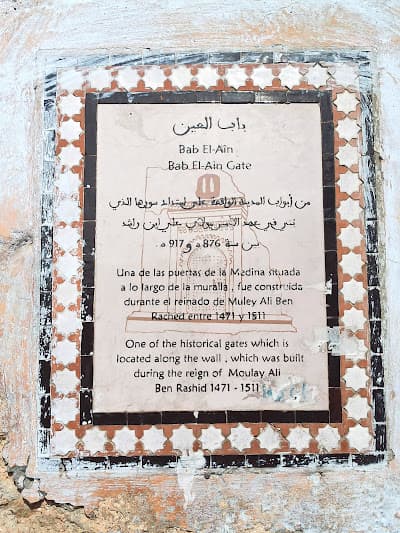 باب العين
Bab El-Aïn
Bab El-Ain Gate
من أبواب المدينة الواقعة على إمتداد سورها الذي
بني في عهد الأمير مولاي علي ابن راشد
بين سنة 876 ه و 917 ه
Una de las puertas de la Medina situada
a lo largo de la muralla , fue construida
durante el reinado de Muley Ali Ben
Rached entre 1471 y 1511
One of the historical gates which is
located along the wall , which was built
during the reign of Moulay Ali
Ben Rashid 1471 - 1511